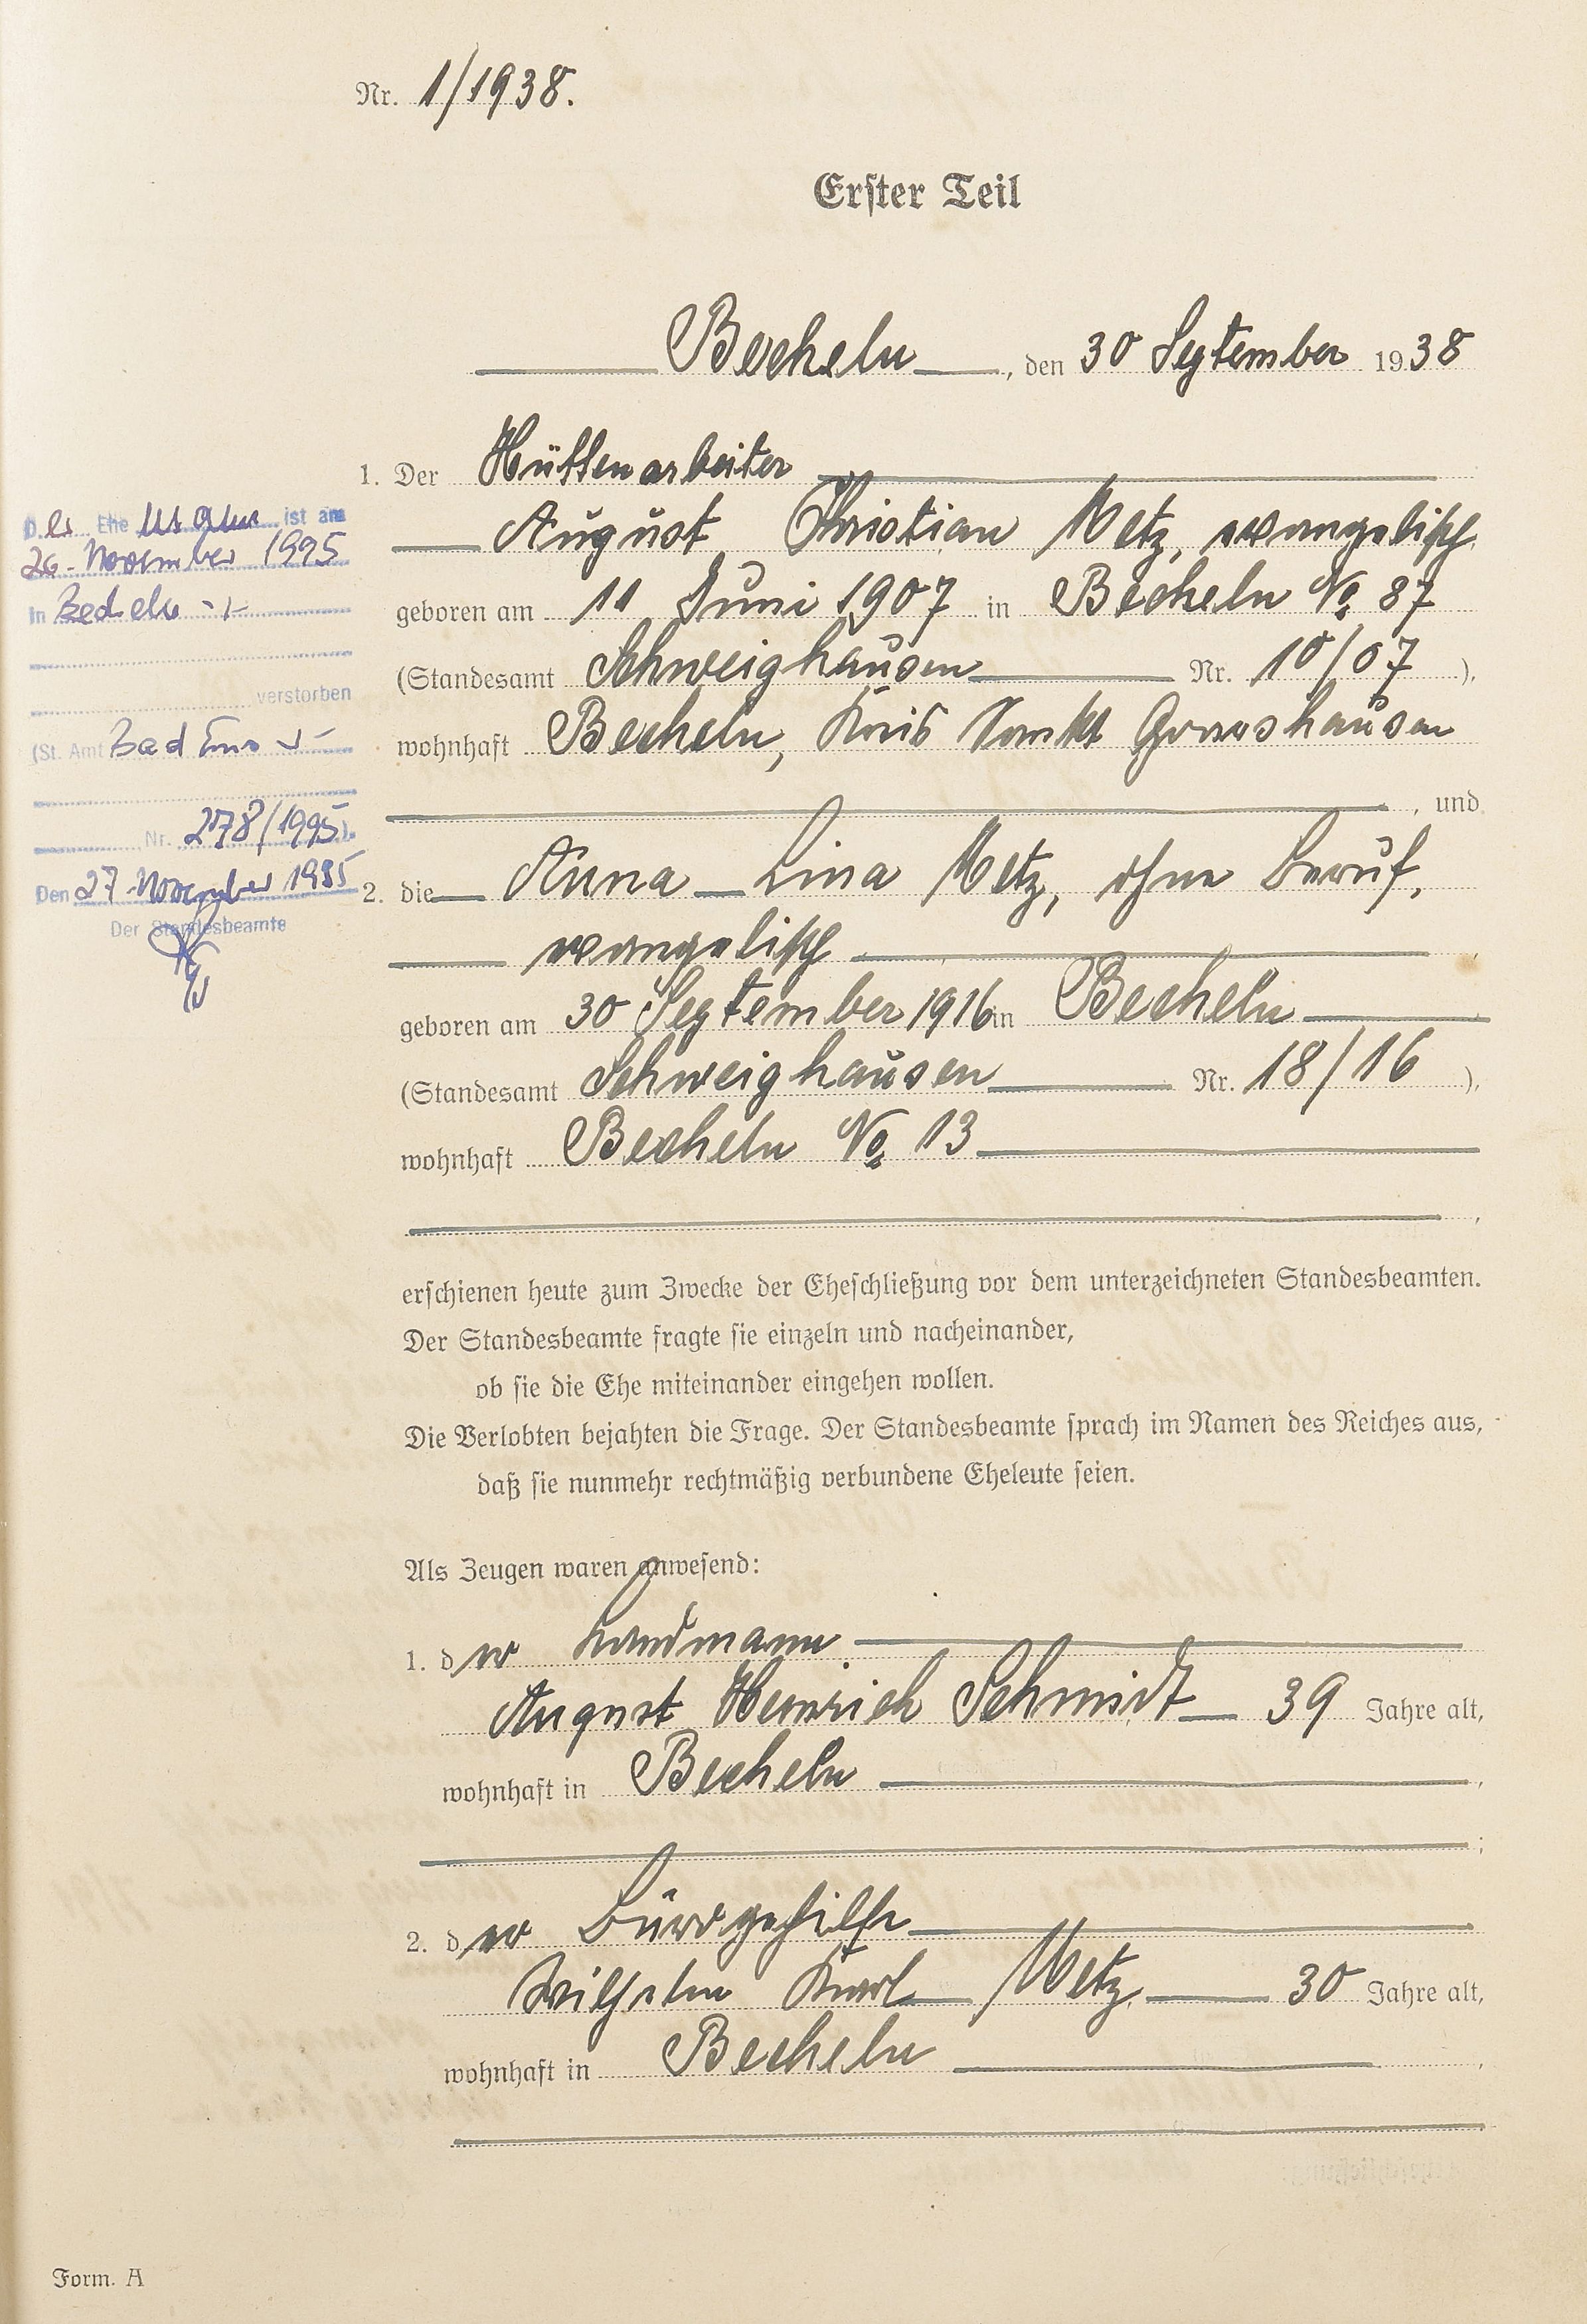 Nr. 1/1938.
Erster Teil
Becheln, den 30 September 1938
1. Der Hüttenarbeiter
August Christian Metz, evangelisch
geboren am 11 Juni 1907 in Becheln No 87
(Standesamt Schweighausen Nr. 10/07 ),
wohnhaft Becheln, Kreis Sankt Goarshausen
, und
2. die Anna Lina Metz, ohne Beruf,
evangelisch
geboren am 30 September 1916 in Becheln
(Standesamt Schweighausen Nr. 18/16 ),
wohnhaft Becheln No 13
,
erschienen heute zum Zwecke der Eheschließung vor dem unterzeichneten Standesbeamten.
Der Standesbeamte fragte sie einzeln und nacheinander,
ob sie die Ehe miteinander eingehen wollen.
Die Verlobten bejahten die Frage. Der Standesbeamte sprach im Namen des Reiches aus,
daß sie nunmehr rechtmäßig verbundene Eheleute seien.
Als Zeugen waren anwesend:
1. der Landmann
August Heinrich Schmidt 39 Jahre alt,
wohnhaft in Becheln ,
;
2. der Bürogehilfe
Wilhelm Karl Metz 30 Jahre alt,
wohnhaft in Becheln ,
Form. A
D.er Ehemann ist am
26. November 1995
in Becheln
verstorben
(St. Amt Bad Ems
Nr. 278/1995).
Den 27. November 1995
Der Standesbeamte